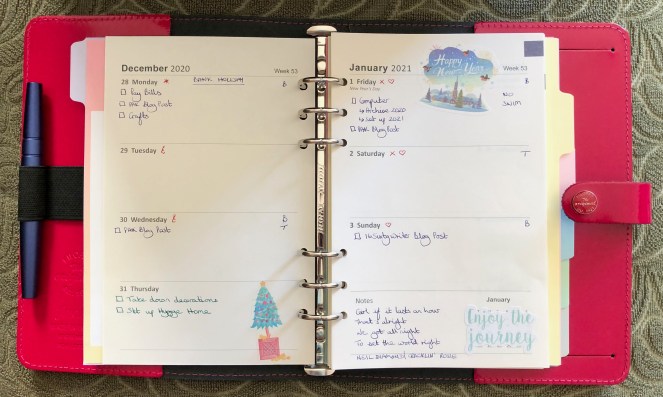 December 2020
Week 53
28 Monday
BANK HOLIDAY
B
Pay Bills
Blog Post
Crafts
29 Tuesday £
30 Wednesday £
B
T
Blog Post
31 Thursday
Take down decorations
Set up Hygge Home
January 2021
Week 53
Happy
New Year
1 Friday
B
New Year's Day
NO
SWIM
Computer
Archive 2020
Set up 2021
Blog Post
2 Saturday
T
3 Sunday
B
Writer Blog Post
Notes
January
Girl if it lasts an hour
That's alright
We got all night
To set the world right
NEIL DIAMOND CRACKLIN' ROSIE
Enjoy the
journey